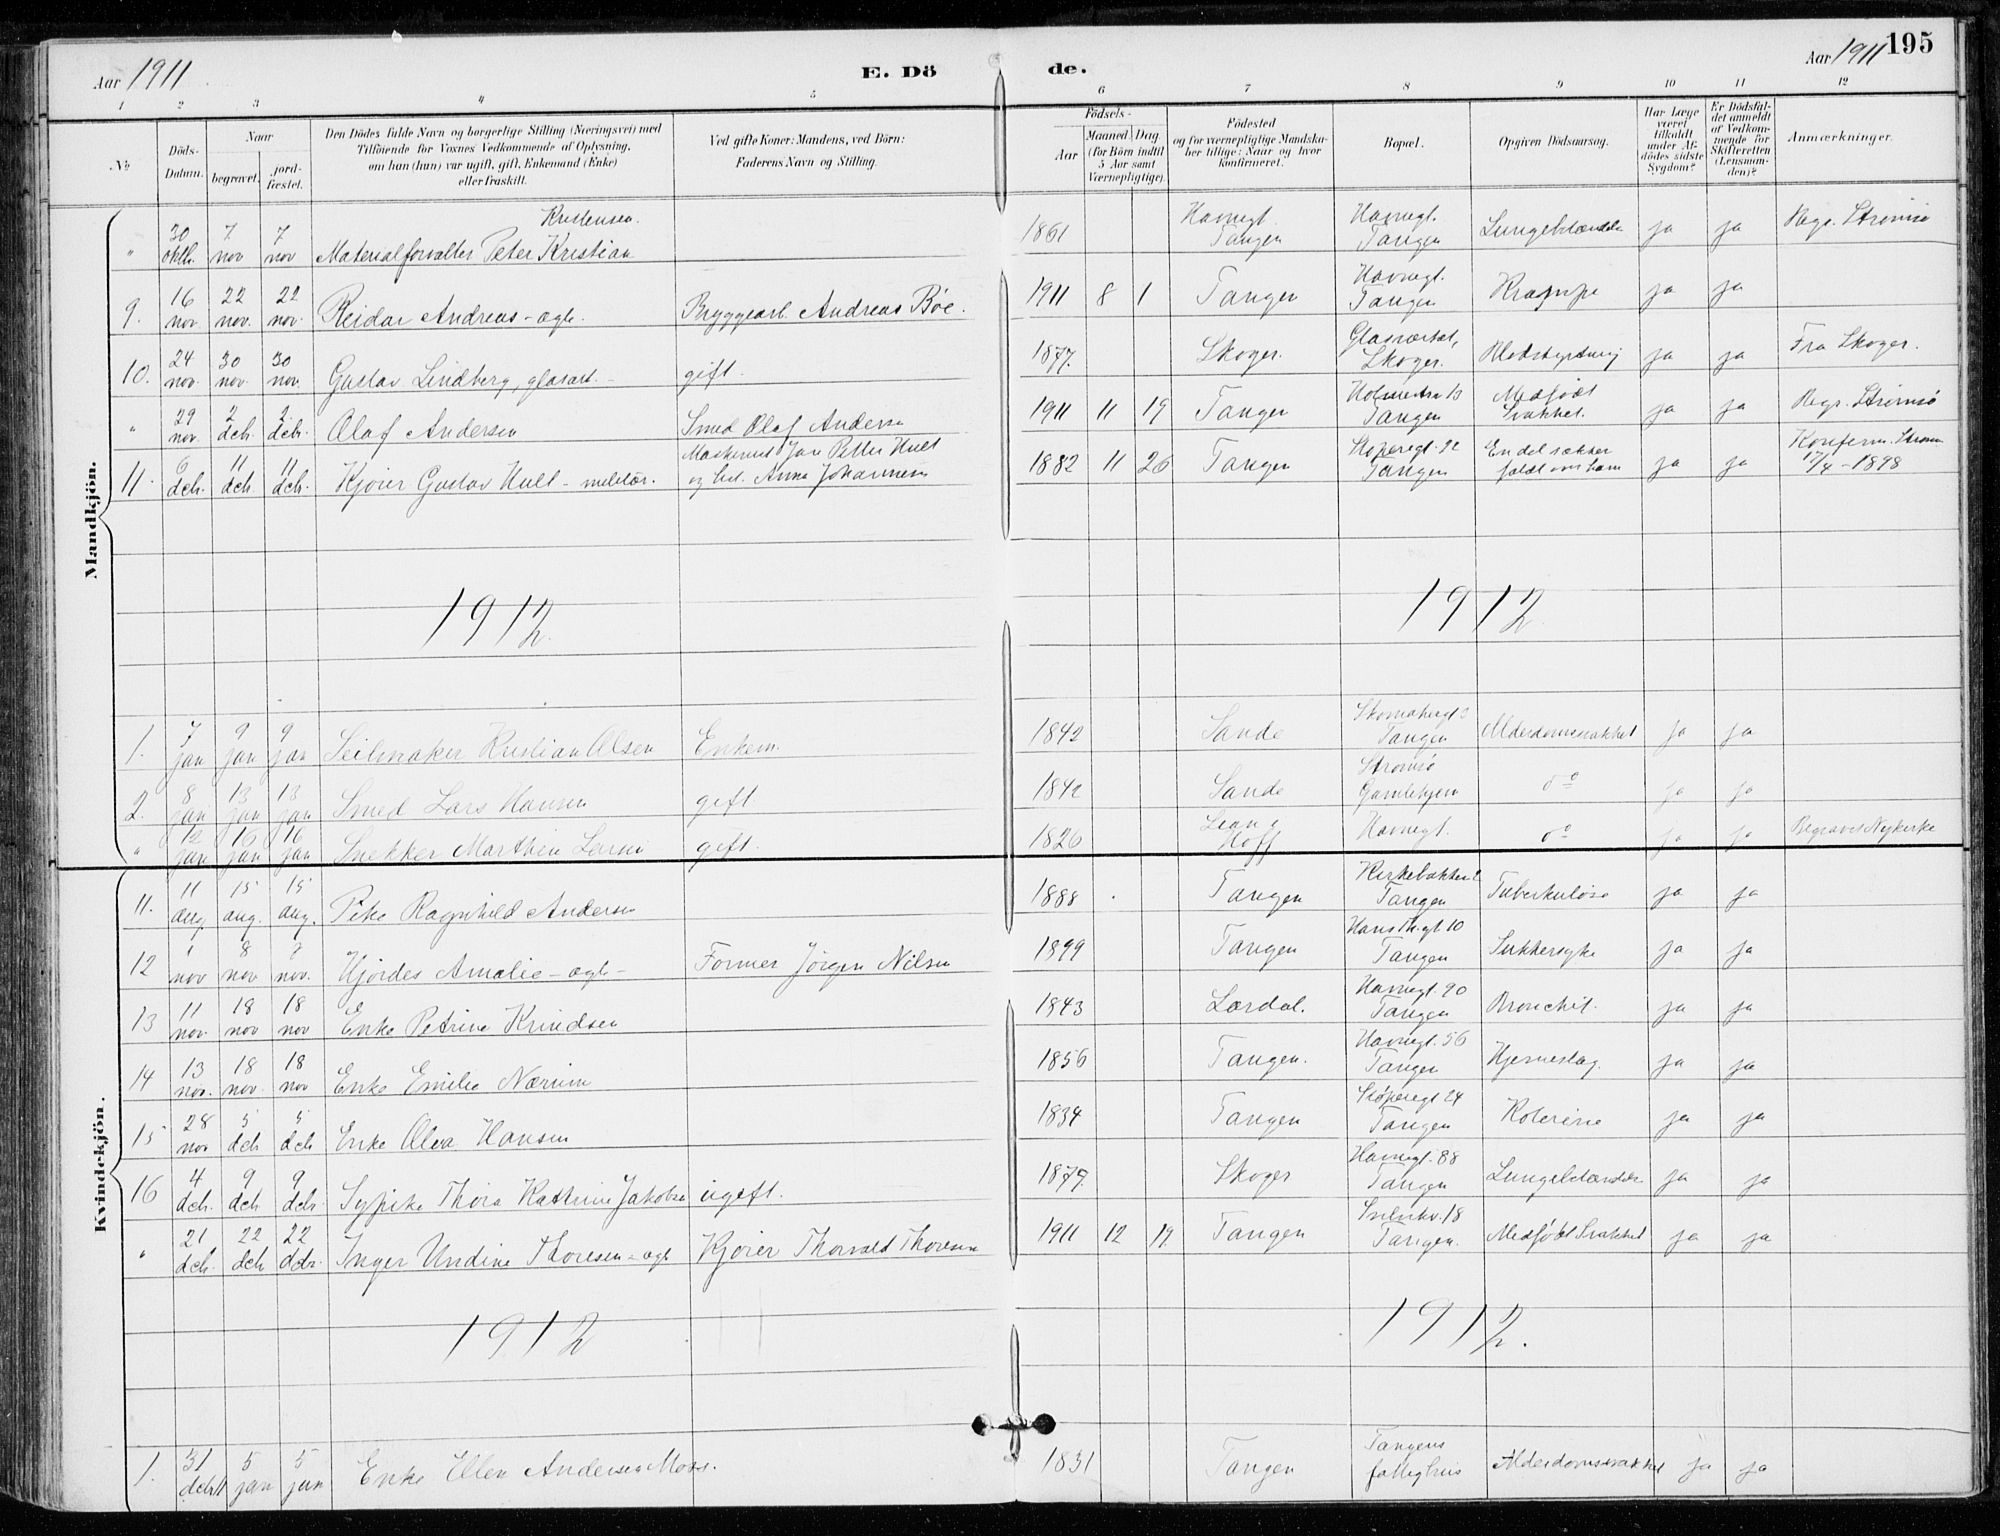 Aar 1911
E. Dö
de.
Aar 1911 195
1 2 3 4 5 6 7 8 9 10 11 12
№
Döds-Datum.
Naar
begravet.
jord-fæstet.
Den Dödes fulde Navn og borgerlige Stilling (Næringsvei) med
Tilföiende for Voxnes Vedkommende af Oplysning,
om han (hun) var ugift, gift, Enkemand (Enke)
eller fraskilt.
Ved gifte Koner: Mandens, ved Börn:
Faderens Navn og Stilling.
Födsels-
Aar
Maaned Dag
(for Börn indtil
5 Aar samt
Værnepligtige).
Födested
og for værnepligtige Mandska-
ber tillige: Naar og hvor
konfirmeret.
Bopæl.
Opgiven Dödsaarsag.
Har Læge
været
tilkaldt
under Af-
dödes sidste
Sygdom?
Er Dödsfal-
det anmeldt
af Vedkom-
mende for
Skifteretten
(Lensman-
den)?
Anmærkninger.
Mandkjön.
" 30 oktb. 7 nov 7 nov Materialforvalter Peter Kristian Kristensen. 1861 Havnegt. Tangen Havnegt. Tangen Lungebetændelse ja ja Begr. Strømsø
9. 16 nov. 22 nov. 22 nov. Reidar Andreas - ægte. Bryggearb. Andreas Bøe. 1911 8 1 Tangen Havnegt. Tangen Krampe ja ja
10. 24 nov. 30 nov. 30 nov. Gustav Lindberg, glasarb. - gift. 1877. Skoger. Glasværket, Skoger. Blodstyrtning ja ja Fra Skoger.
" 29 nov. 2 dcb. 2 dcb. Olaf Andersen Smed Olaf Andersen 1911 11 19 Tangen Tangen Medfødt Svakhet. ja ja Begr. Strømsø
11. 6 dcb. 11 dcb. 11 dcb. Kjører Gustav Hult - militær. Maskinist Jan Petter Hult og Anna Johannesen 1882 11 26 Tangen Støperegt. 92 Tangen En del sækker faldt over ham ja ja Konferm. Strøm 17/4 - 1898
1912 1912
1. 7 jan 9 jan 9 jan Seilmaker Kristian Olsen Enkem. 1842 Sande Skomakergt 3 Tangen Alderdomssvakhet ja ja
2. 8 jan 13 jan 13 jan Smed Lars Hansen gift. 1842 Sande Strømsø Gamlehjem do ja ja
" 12 jan 16 jan 16 jan Snekker Marthin Larsen gift. 1826 Hoff Havnegt. do ja ja Begravet Nykirke
Kvindekjön.
11. 11 aug. 15 aug. 15 aug. Pike Ragnhild Andersen 1888 Tangen Kirkebakken Tangen Tuberkuløse ja ja
12 1 nov 8 nov 8 nov. Hjørdes Amalie - ægte - Former Jørgen Nilsen 1899 Tangen Hans Th.gt 10 Tangen Sukkersyke ja ja
13 11 nov. 18 nov 18 nov Enke Petrine Knudsen 1843 Lærdal. Havnegt. 90 Tangen Bronchit. ja ja
14 13 nov. 18 nov. 18 nov Enke Emilie Nærum 1856 Tangen. Havnegt. 56 Tangen Hjerneslag ja ja
15 28 nov 5 dcb 5 dcb Enke Olea Hansen 1834 Tangen Støperegt 24 Tangen Kolerine ja ja
16 4 dcb. 9 dcb 9 dcb. Sypike Thora Kathrine Jakobsen ugift. 1879 Skoger Havnegt. 88 Tangen Lungebetændelse ja ja
" 21 dcb. 22 dcb 22 dcb. Inger Undine Thoresen - ægte Kjører Thorvald Thoresen 1911 12 19 Tangen 18 Tangen. Medfødt Svakhet ja ja
1912 1912.
1. 31 dcb 11 5 jan 5 jan Enke Ellen Andersen Moss. 1831 Tangen Tangens fattighus Alderdomssvakhet ja ja